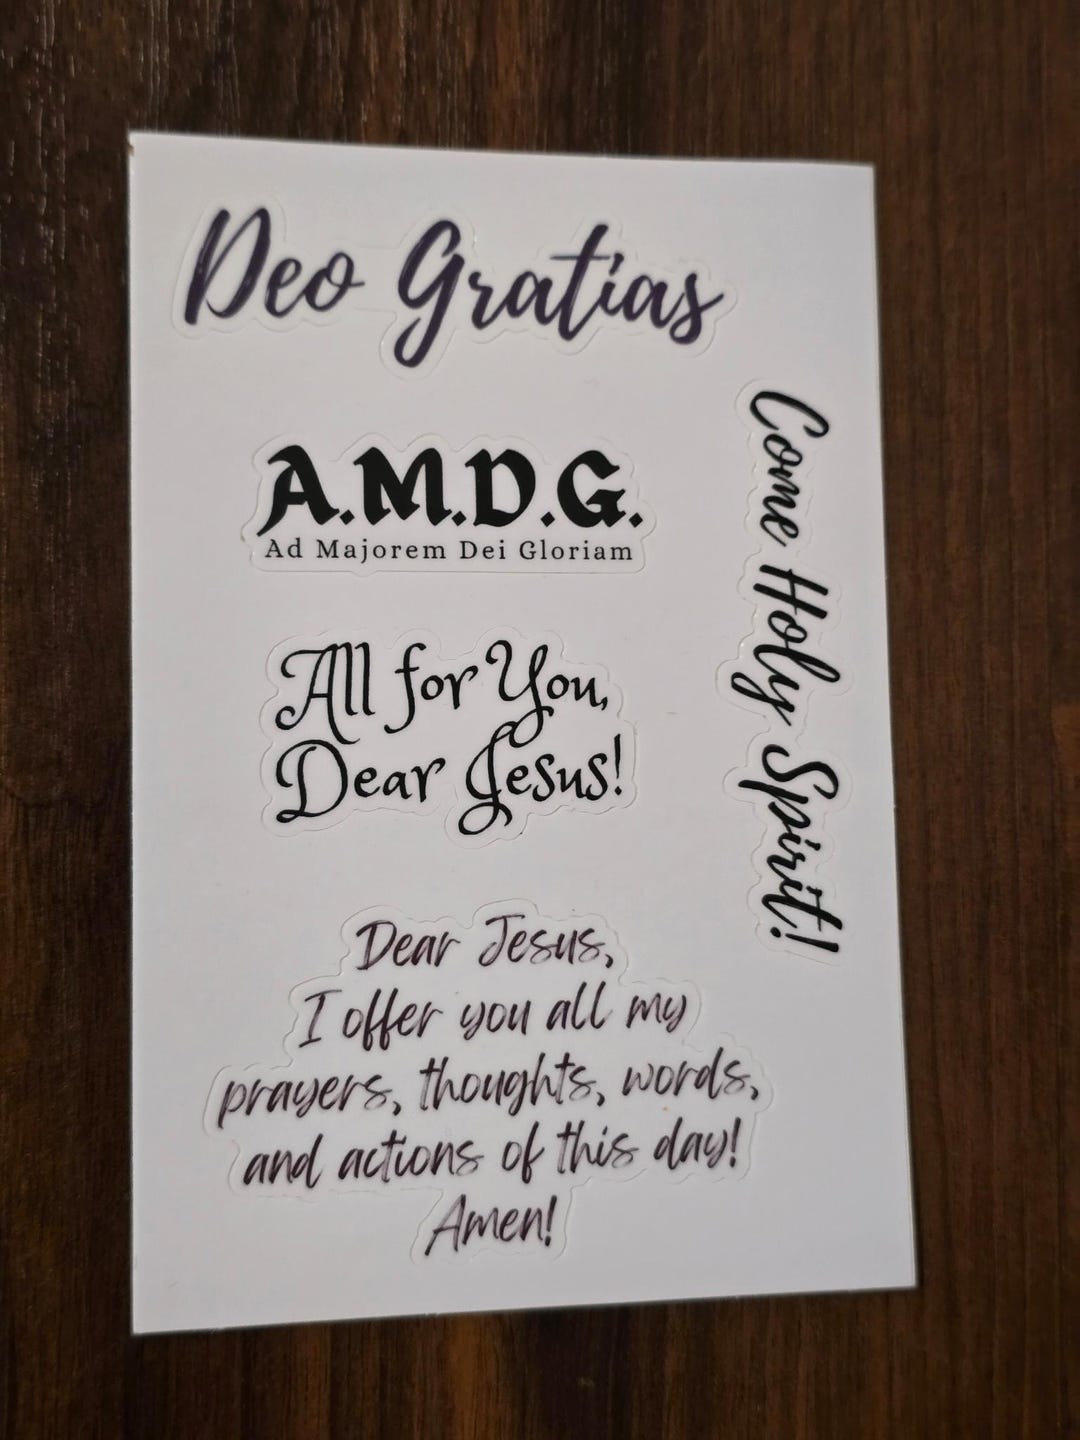 Deo Gratias
A.M.D.G.
Ad Majorem Dei Gloriam
All for You,
Dear Jesus!
Come Holy Spirit!
Dear Jesus,
I offer you all my
prayers, thoughts, words,
and actions of this day!
Amen!